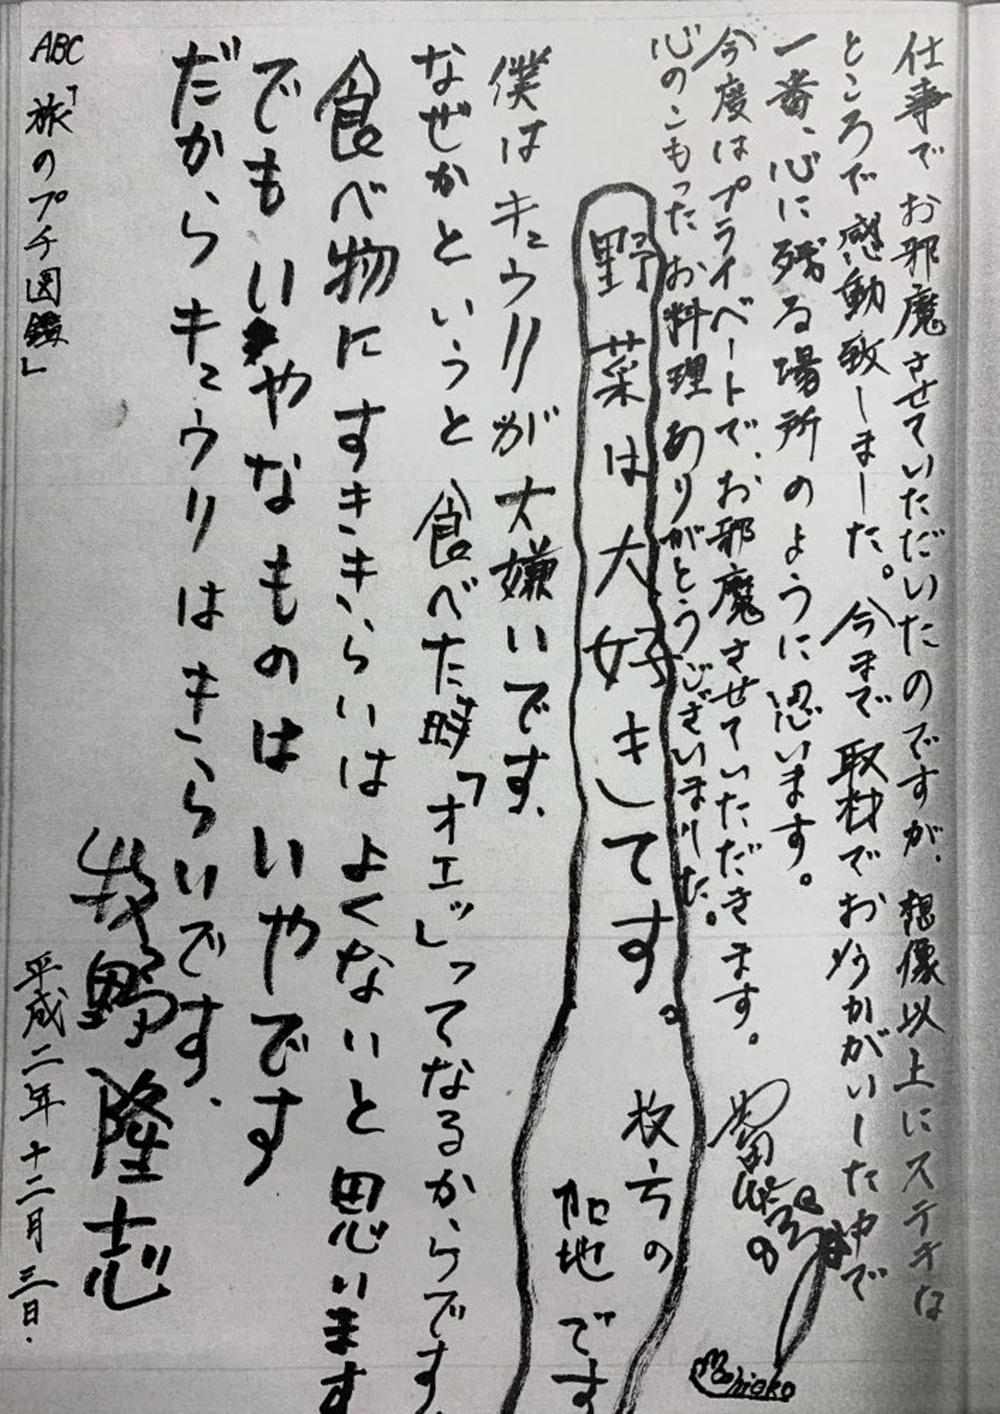 仕事でお邪魔させていただいたのですが、想像以上にステキな
ところで感動致しました。今まで取材でお伺いした中で
一番、心に残る場所のように思います。
今度はプライベートで、お邪魔させていただきます。
心のこもったお料理ありがとうございました。
Chieko
野菜は大好きです。
枚方の
加地です
僕はキュウリが大嫌いです。
なぜかというと食べた時「オエッ」ってなるからです。
食べ物にすききらいはよくないと思います
でもいやなものはいやです
だからキュウリはきらいです。
牧野隆志
ABC「旅のプチ図鑑」
平成二年十二月三日.